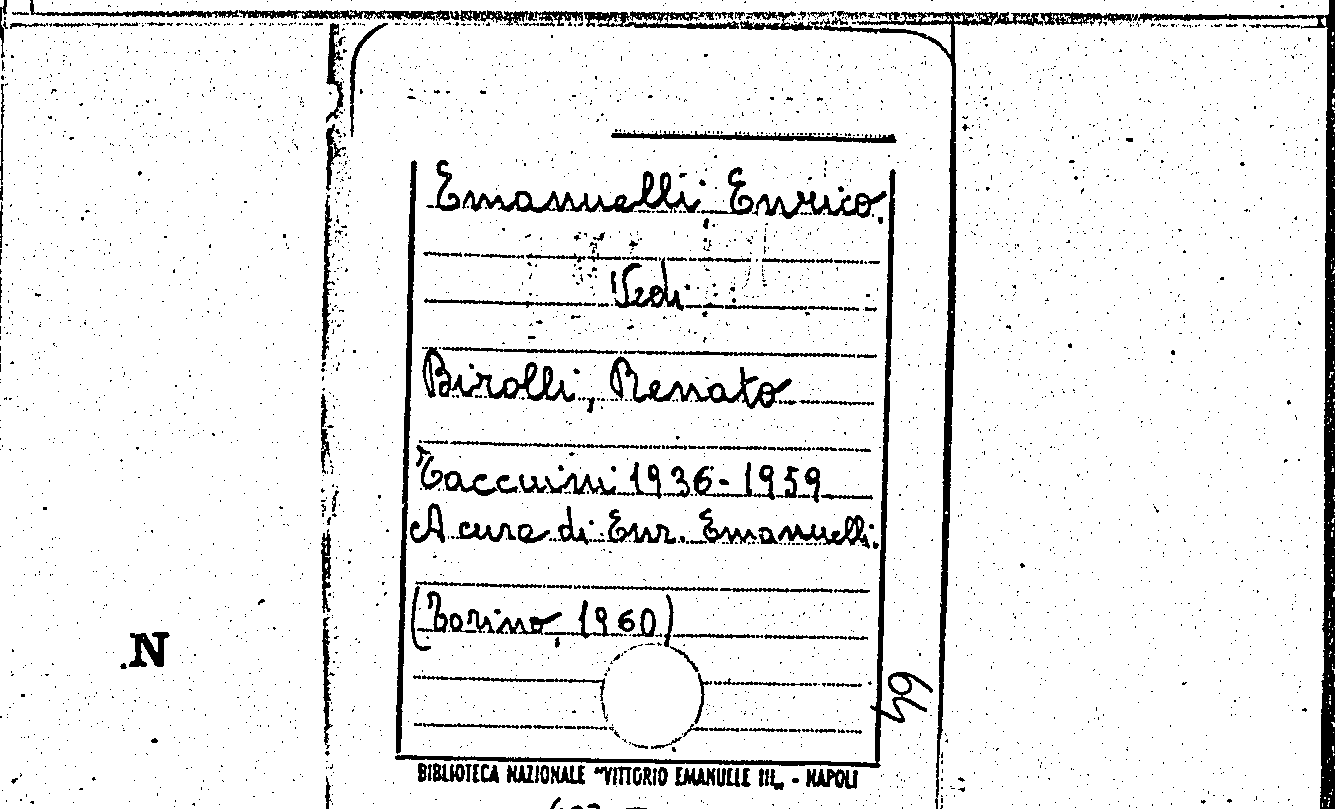 Emanuelli Enrico.
Vedi
Birolli, Renato
Taccuini 1936-1959
A cura di Enr. Emanuelli.
(Torino, 1960)
.N
64
BIBLIOTECA NAZIONALE "VITTORIO EMANUELE III„ - NAPOLI